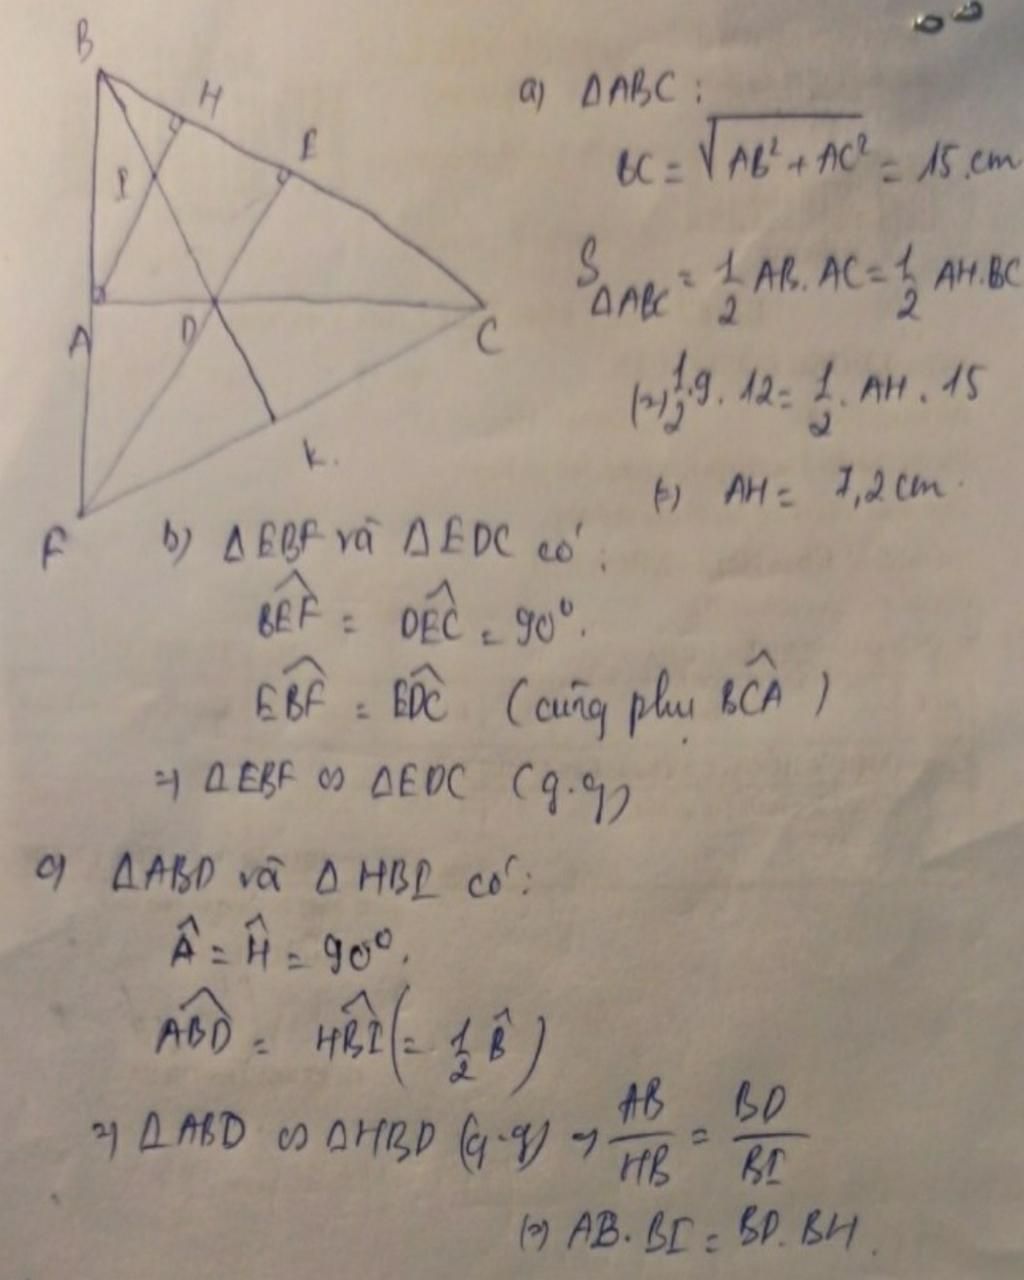 B
H
E
I
A
D
C
K.
F
a) ΔABC :
BC = √AB² + AC² = 15.cm
S ΔABC = 1/2 AB. AC = 1/2 AH.BC
(=) 1/2.9. 12 = 1/2. AH. 15
(=) AH = 7,2 cm.
b) ΔEBF và ΔEDC có:
BEF = DEC = 90°.
EBF = EDC (cùng phụ BCA)
=) ΔEBF ∽ ΔEDC (g.g)
c) ΔABD và ΔHBI có:
Â = Ĥ = 90°.
ABD = HBI (= 1/2 B̂)
=) ΔABD ∽ ΔHBD (g.g) => AB/HB = BD/BI
(=) AB.BI = BD.BH.